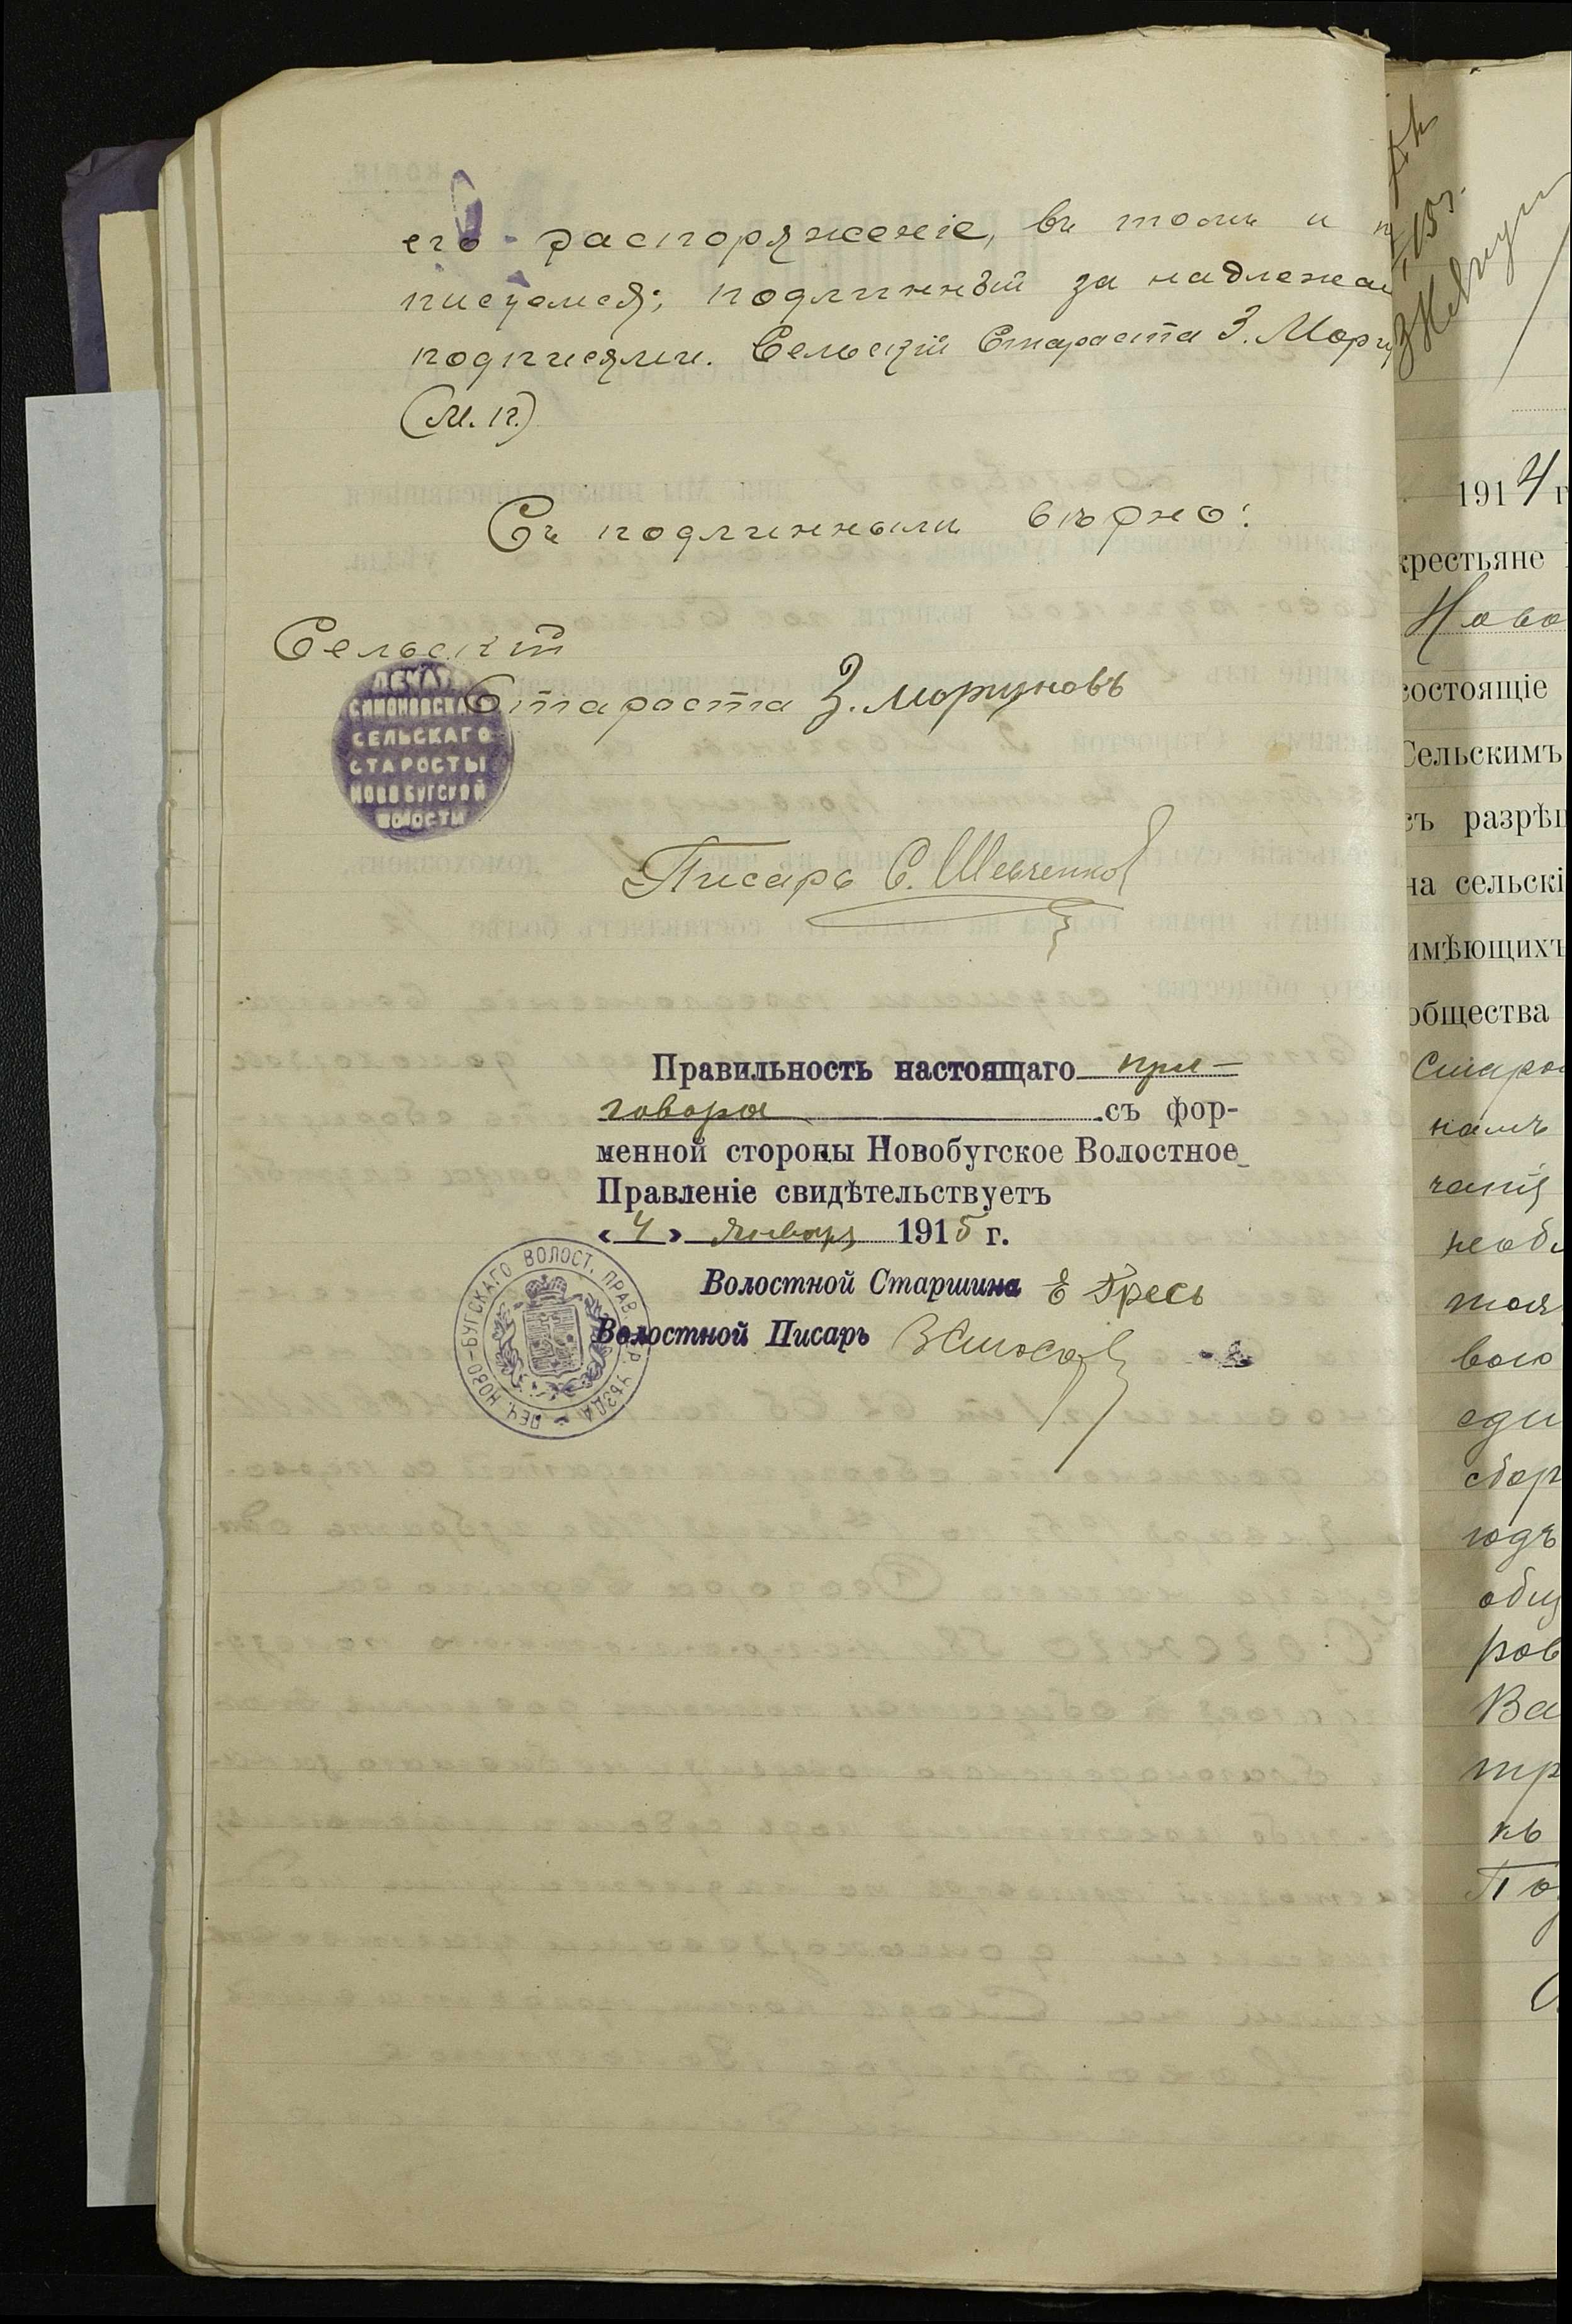 его распоряженіе, въ томъ и п
писуемся; подлинный за надлежа
подписями. Сельскій Староста З. Морг
(М. П.)
Съ подлиннымъ вѣрно:
Сельскій
Староста З. Моргуновъ
ПЕЧАТЬ
СИМОНОВСКАГО
СЕЛЬСКАГО
СТАРОСТЫ
НОВОБУГСКОЙ
ВОЛОСТИ
Писарь С. Шевченков
Правильность настоящаго при-
говора съ фор-
менной стороны Новобугское Волостное
Правленіе свидѣтельствуетъ
«4» Января 1915 г.
Волостной Старшина Е Гресь
Волостной Писарь
ПЕЧ. НОВО-БУГСКАГО ВОЛОСТ. ПРАВ. ХЕР. УѢЗДА
1914 г
крестьяне
Ново
состоящіе
Сельскимъ
съ разрѣш
на сельскі
имѣющихъ
общества
Старо
намъ
необ
вого
сбор
годъ
общ
ров
Ва
тр
къ
По